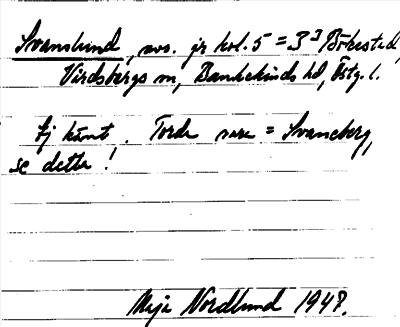 Svanslund, sos. jr kol. 5 = 3ᴶ Bökestad,
Virdsbergs sn, Bankekinds hd, Östg. l.
Ej känt. Torde vara = Svaneberg,
se detta!
Maja Nordlund 1947.